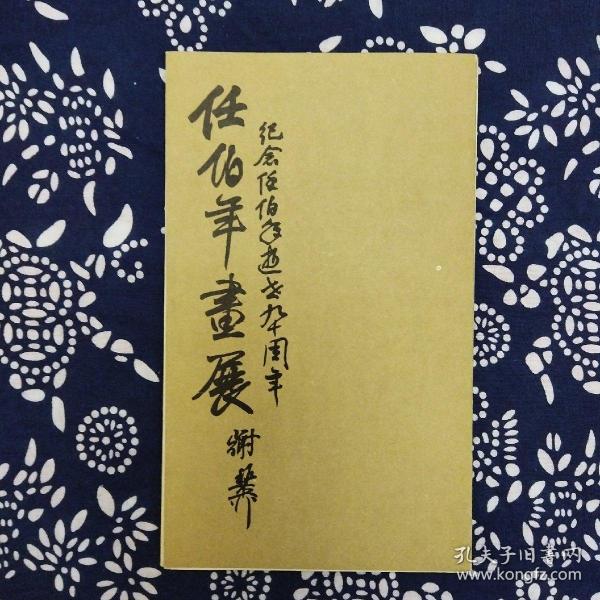 纪念任伯年逝世九十周年
任伯年畫展
孔夫子旧書网
www.kongfz.com